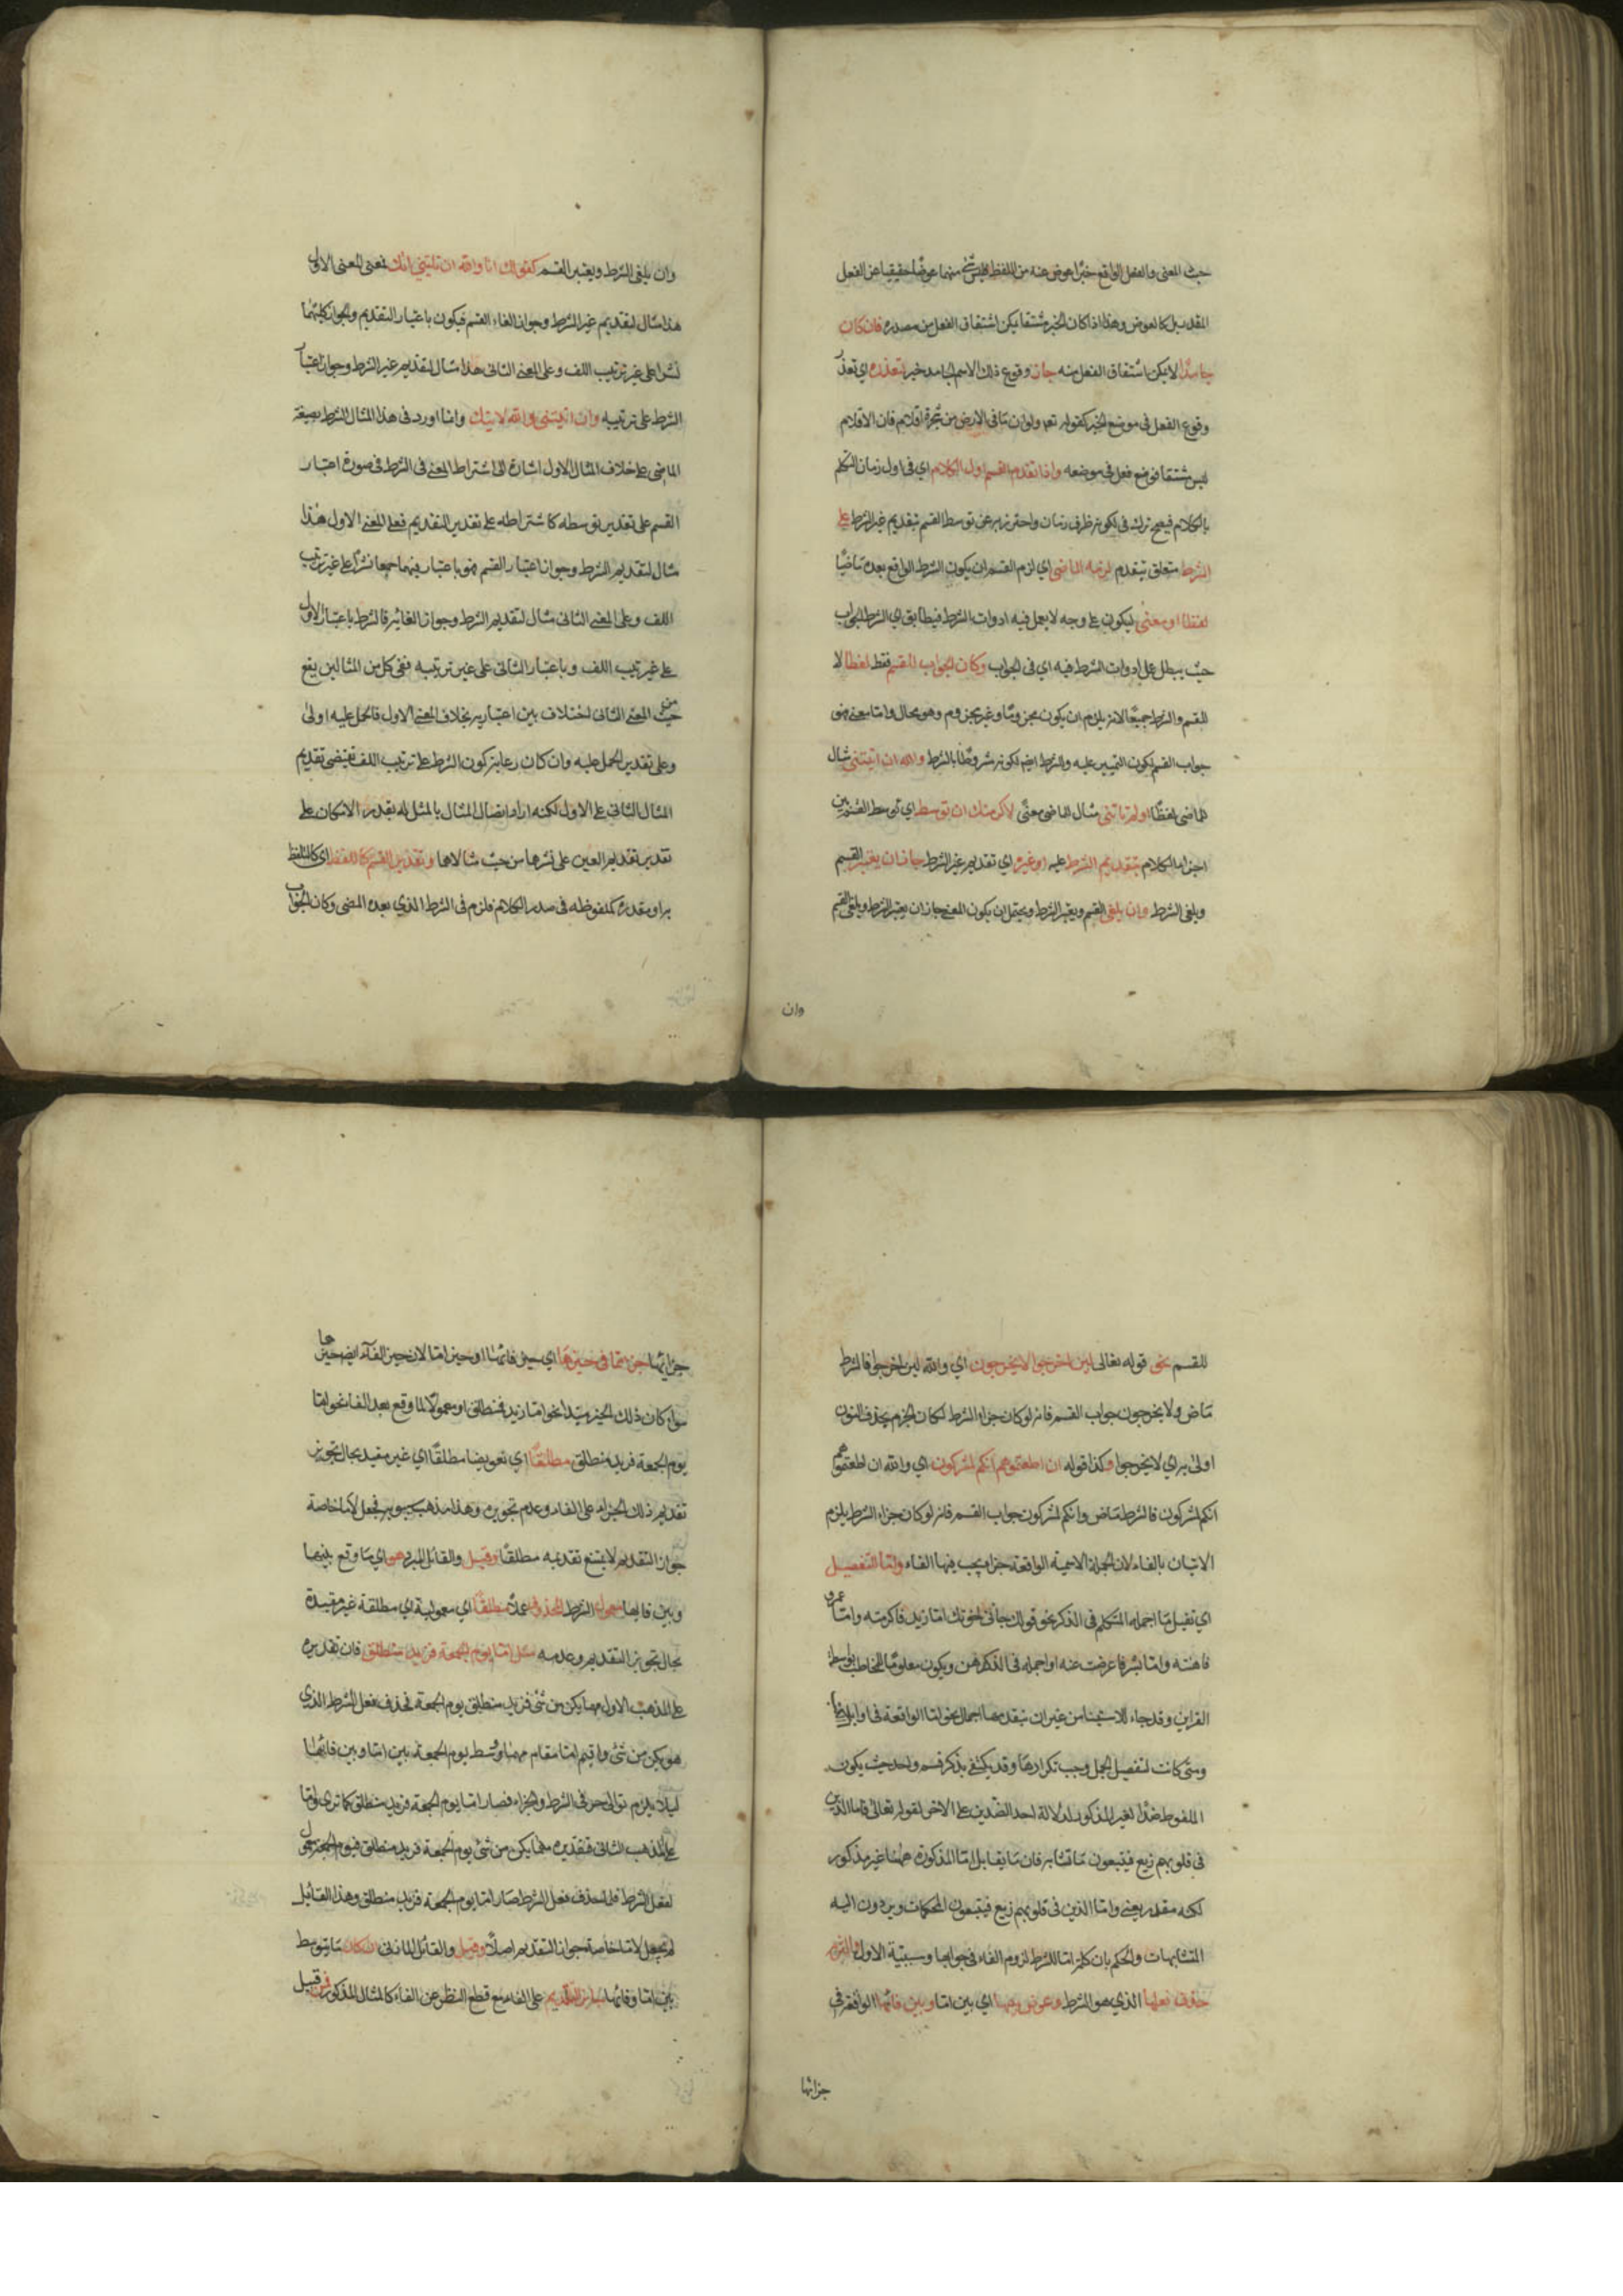 حيث المعنى والفعل الواقع خبرا عوض عنه من اللفظ فليس شئ منهما عوضا حقيقيا عن الفعل
المقدر بل كالعوض وهذا اذا كان الخبر مشتقا يمكن اشتقاق الفعل من مصدره فان كان
جامدا لا يمكن اشتقاق الفعل منه جاز وقوع ذلك الاسم الجامد خبرا لتعذره اي تعذر
وقوع الفعل في موضع الخبر كقوله تعم ولو ان ما في الارض من شجرة اقلام فان الاقلام
ليس مشتقا فوضع فعل في موضعه واذا تقدم القسم اول الكلام اي في اول زمان التكلم
بالكلام فيصح ترك في لكونه ظرف زمان واحترز به عن توسط القسم بتقديم غير الشرط على
الشرط متعلق بتقدم لزمه الماضي اي لزم القسم ان يكون الشرط الواقع بعده ماضيا
لفظا او معنى ليكون على وجه لا يعمل فيه ادوات الشرط فيطابق اي الشرط الجواب
حيث يبطل عمل ادوات الشرط فيه اي في الجواب وكان الجواب للقسم فقط لفظا لا
للقسم والشرط جميعا لانه يلزم ان يكون مجزوما وغير مجزوم وهو محال واما معنى فهو
جواب القسم لكون اليمين عليه والشرط ايضا لكونه مشروطا بالشرط والله ان اتيتني مثال
للماضي لفظا او لم تاتني مثال الماضي معنى لاكرمتك ان توسط اي توسط القسم بين
اجزاء الكلام بتقديم الشرط عليه او غيره اي تقديم غير الشرط جاز ان يعتبر القسم
ويلغى الشرط وان يلغى القسم ويعتبر الشرط ويحتمل ان يكون المعنى جاز ان يعتبر الشرط ويلغى القسم
وان
وان يلغى الشرط ويعتبر القسم كقولك انا والله ان تاتيني اتك فعلى المعنى الاول
هذا مثال لتقديم غير الشرط وجواز الغاء القسم فيكون باعتبار التقديم والجواز كليهما
نشرا على غير ترتيب اللف وعلى المعنى الثاني هذا مثال لتقديم غير الشرط وجواز اعتبار
الشرط على ترتيبه وان اتيتني والله لاتينك وانما اورد في هذا المثال الشرط بصيغة
الماضي على خلاف المثال الاول اشارة الى اشتراط المضي في الشرط في صورة اعتبار
القسم على تقدير توسطه كاشتراطه على تقدير التقديم فعلى المعنى الاول هذا
مثال لتقديم الشرط وجواز اعتبار القسم فهو باعتبار فيهما جميعا نشر على غير ترتيب
اللف وعلى المعنى الثاني مثال لتقديم الشرط وجواز الغائه فالشرط باعتبار الاول
على غير ترتيب اللف وباعتبار الثاني على غير ترتيبه ففي كل من المثالين يقع
من حيث المعنى الثاني اختلاف بين اعتباريه بخلاف المعنى الاول فالحمل عليه اولى
وعلى تقدير الحمل عليه وان كان رعاية كون الشرط على ترتيب اللف تقتضي تقديم
المثال الثاني على الاول لكنه اراد اتصال المثال بالمثل له بقدر الامكان على
تقدير تقديم العين على نشرها من حيث مثالاها وتقدير القسم كاللفظ اي كالتلفظ
به او مقدره كملفوظه في صدر الكلام فلزم في الشرط الذي بعده المضي وكان الجواب
للقسم نحو قوله تعالى لئن اخرجوا لا يخرجون اي والله لئن اخرجوا فالشرط
ماض ولا يخرجون جواب القسم فانه لو كان جزاء الشرط لكان الجزم بحذف النون
اولى به اي لا يخرجوا وكذا قوله ان اطعتموهم انكم لمشركون اي والله ان اطعتموهم
انكم لمشركون فالشرط ماض وانكم لمشركون جواب القسم فانه لو كان جزاء الشرط يلزم
الاتيان بالفاء لان الجملة الاسمية الواقعة جزاء يجب فيها الفاء واما للتفصيل
اي تفصيل ما اجمله المتكلم في الذكر نحو قولك جاءني اخوتك اما زيد فاكرمته واما عمرو
فاهنته واما بشر فاعرضت عنه او اجمله في الذهن ويكون معلوما للمخاطب بواسطة
القراين وقد جاء للاستيناف من غير ان يتقدمها اجمال نحو اما الواقعة في اوايل
ومتى كانت لتفصيل المجمل وجب تكرارها وقد يكتفى بذكر قسم واحد حيث يكون
الملفوظ ضدا لغير المذكور لدلالة احد الضدين على الاخر لقوله تعالى فاما الذين
في قلوبهم زيغ فيتبعون ما تشابه فان ما يقابل اما المذكورة ههنا غير مذكور
لكنه مقدر يعني واما الذين في قلوبهم زيغ فيتبعون المحكمات ويردون اليه
المتشابهات والحكم بان كلمة اما للشرط لزوم الفاء في جوابها وسببية الاول والتزم
حذف فعلها الذي هو الشرط وعوض بينهما اي بين اما وبين فائها الواقعة في
جزائها
جزائها جزء مما في حيزها اي حيز فائها او حيز اما لان حيز الفاء ايضا حيزها
سواء كان ذلك الجزء مبتدا نحو اما زيد فمنطلق او معمولا لما وقع بعد الفاء نحو اما
يوم الجمعة فزيد منطلق مطلقا اي تعويضا مطلقا اي غير مقيد بحال تجويز
تقديم ذلك الجزء على الفاء وعدم تجويزه وهذا مذهب سيبويه فجعل لاما خاصة
جواز التقديم لا يمتنع تقديمه مطلقا وقيل والقائل المبرد هو اي ما وقع بينهما
وبين فائها معمول الشرط المحذوف عملا مطلقا اي معمولية اي مطلقة غير مقيدة
بحال تجويز التقديم وعدمه مثل اما يوم الجمعة فزيد منطلق فان تقديره
على المذهب الاول مهما يكن من شئ فزيد منطلق يوم الجمعة فحذف فعل الشرط الذي
هو يكن من شئ واقيم اما مقام مهما ووسط يوم الجمعة بين اما وبين فائها
ليلا يلزم توالي حرفي الشرط والجزاء فصار اما يوم الجمعة فزيد منطلق كما ترى واما
على المذهب الثاني فتقديره مهما يكن من شئ يوم الجمعة فزيد منطلق فيوم الجمعة معمول
لفعل الشرط فلما حذف فعل الشرط صار اما يوم الجمعة فزيد منطلق وهذا القائل
لم يجعل لاما خاصة جواز التقديم اصلا وقيل والقائل المازني ان كان ما يتوسط
بين اما وفائها جايز التقديم على الفاء مع قطع النظر عن الفاء كالمثال المذكور فمن قبيل